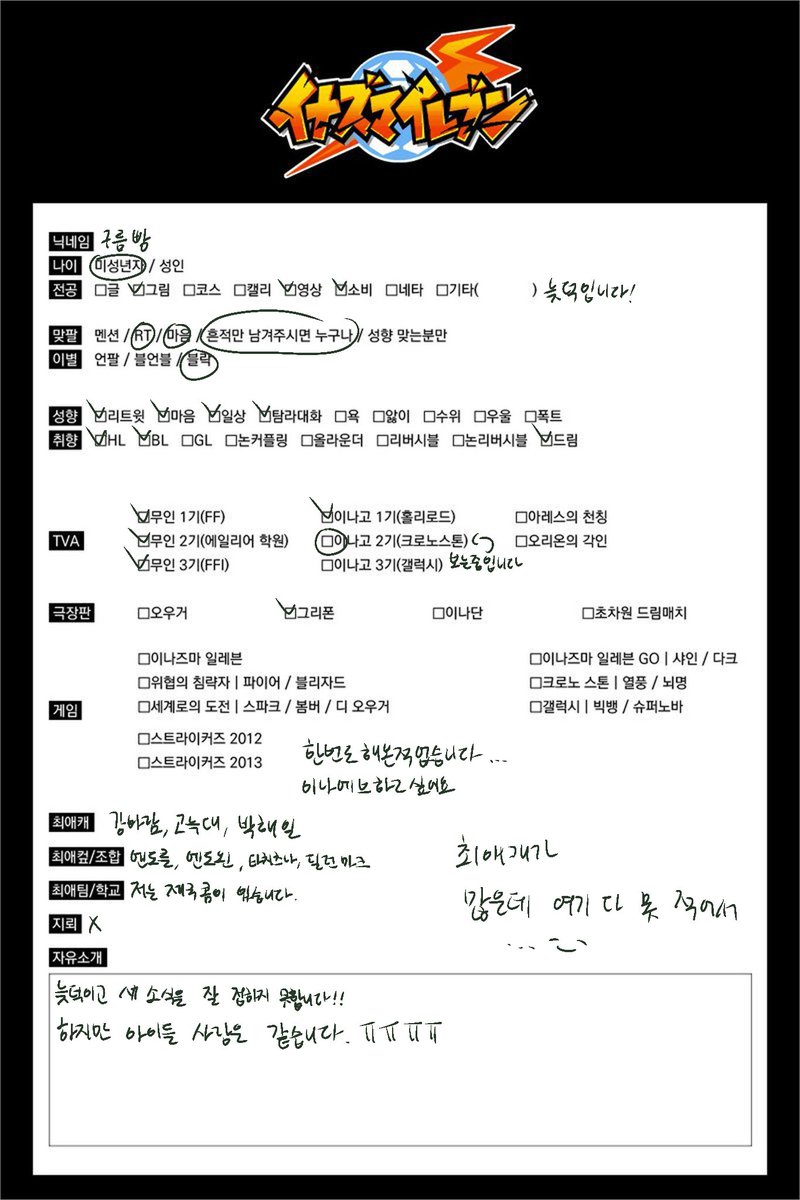 イナズマイレブン
닉네임 구름빵
나이 미성년자 / 성인
전공 □글 ☑그림 □코스 □캘리 ☑영상 ☑소비 □네타 □기타( ) 늦덕입니다!
맞팔 멘션 / RT / 마음 / 흔적만 남겨주시면 누구나 / 성향 맞는분만
이별 언팔 / 블언블 / 블락
성향 ☑리트윗 ☑마음 ☑일상 ☑탐라대화 □욕 □앓이 □수위 □우울 □폭트
취향 ☑HL ☑BL □GL □논커플링 □올라운더 □리버시블 □논리버시블 ☑드림
☑무인 1기(FF) ☑이나고 1기(홀리로드) □아레스의 천칭
TVA ☑무인 2기(에일리어 학원) □이나고 2기(크로노스톤) □오리온의 각인
☑무인 3기(FFI) □이나고 3기(갤럭시) 보는중입니다
극장판 □오우거 ☑그리폰 □이나단 □초차원 드림매치
□이나즈마 일레븐 □이나즈마 일레븐 GO | 샤인 / 다크
□위협의 침략자 | 파이어 / 블리자드 □크로노 스톤 | 열풍 / 뇌명
게임 □세계로의 도전 | 스파크 / 봄버 / 디 오우거 □갤럭시 | 빅뱅 / 슈퍼노바
□스트라이커즈 2012
□스트라이커즈 2013
한번도 해본적 없습니다...
이나에보 하고 싶어요
최애캐 강바람, 고늑대, 박해일
최애컾/조합 엔도를, 엔도원, 타치츠나,
최애팀/학교 저는 제국콤이 있습니다.
지뢰 X
최애캐가
많은데 여기 다 못 적어서
...
자유소개
늦덕이고 새 소식을 잘 접하지 못합니다!!
하지만 아이들 사랑은 같습니다. ㅠㅠㅠㅠ